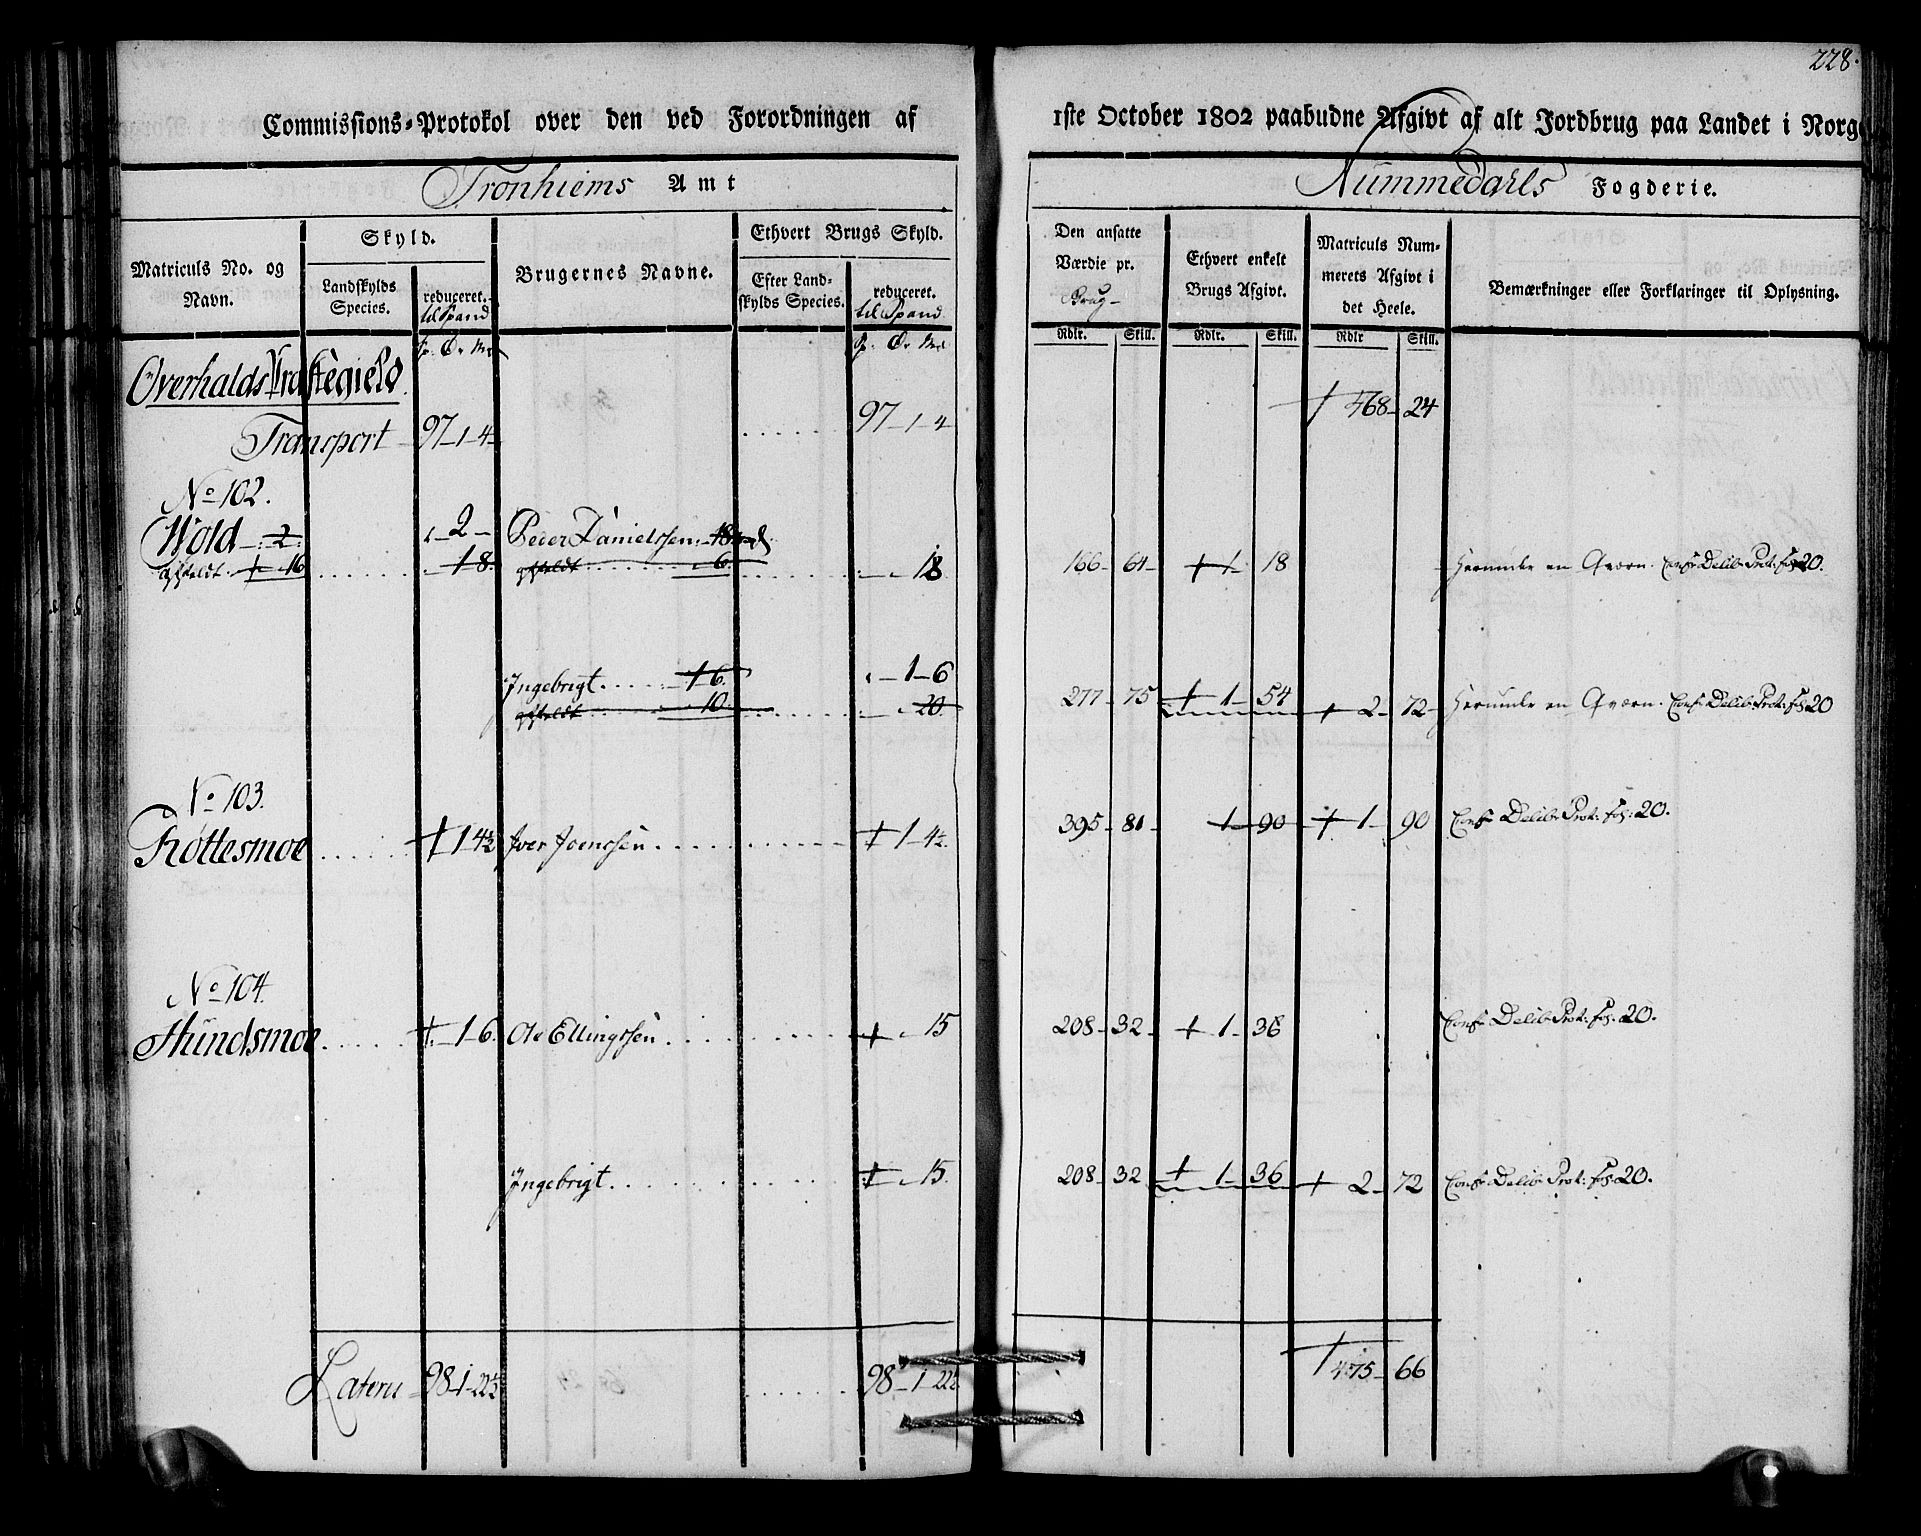 228.
Commissions-Protokol over den ved Forordningen af 1ste October 1802 paabudne Afgivt af alt Jordbrug paa Landet i Norg
Tronhiems Amt
Nummedahls Fogderie.
Matriculs No. og Navn.
Skyld.
Landskylds Species.
reduceret.
til Spand
Brugernes Navne.
Ethvert Brugs Skyld.
Efter Landskylds Species.
reduceret.
til Spand
Den ansatte Værdie pr. Brug
Ethvert enkelt Brugs Afgivt.
Matriculs Nummerets Afgivt i det Heele.
Bemærkninger eller Forklaringer til Oplysning.
Rdlr. Skill. Rdlr. Skill. Rdlr Skill.
Overhalds Præstegield
Transport 97-1-4 97-1-4 468-24
No 102.
Wold -2- 2- Peder Danielssen 18
afskeldt 16 18 afskeldt 6 18 166-64- 1-18 Herunder en Qværn. Conf Delib: Prot: fol 20.
Ingebrigt 16 1-6
afskeldt 10 20 277-75 1-54 2-72- Herunder en Qværn. Conf Delib: Prot: fol 20
No 103.
Rottesmoe 1-4½ Iver Joenssen 1-4½ 395-81- 1-90 1-90 Conf Delib: Prot: fol: 20.
No 104.
Hundsmoe 1-6 Ole Ellingssen 15 208-32- 1-36 Conf Delib: Prot: fol: 20.
Ingebrigt 15 208-32 1-36 2-72 Conf Delib: Prot: fol: 20.
Lateru 98-1-22½ 98-1-22½ 475-66